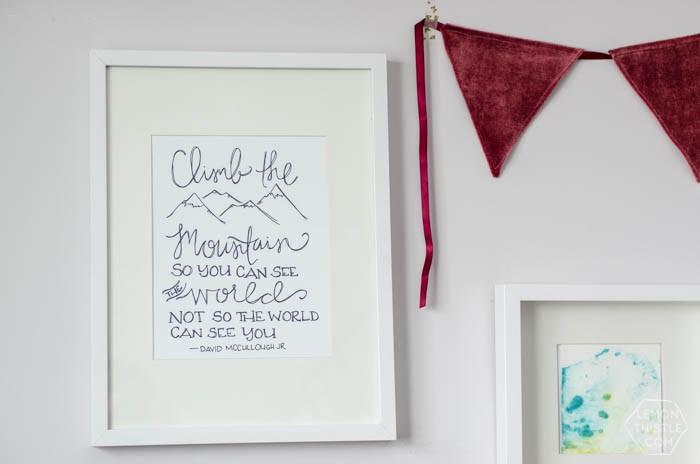 Climb the
Mountain
SO YOU CAN SEE
THE World
NOT SO THE WORLD
CAN SEE YOU
—DAVID MCCULLOUGH JR
LEMON
THISTLE
.COM